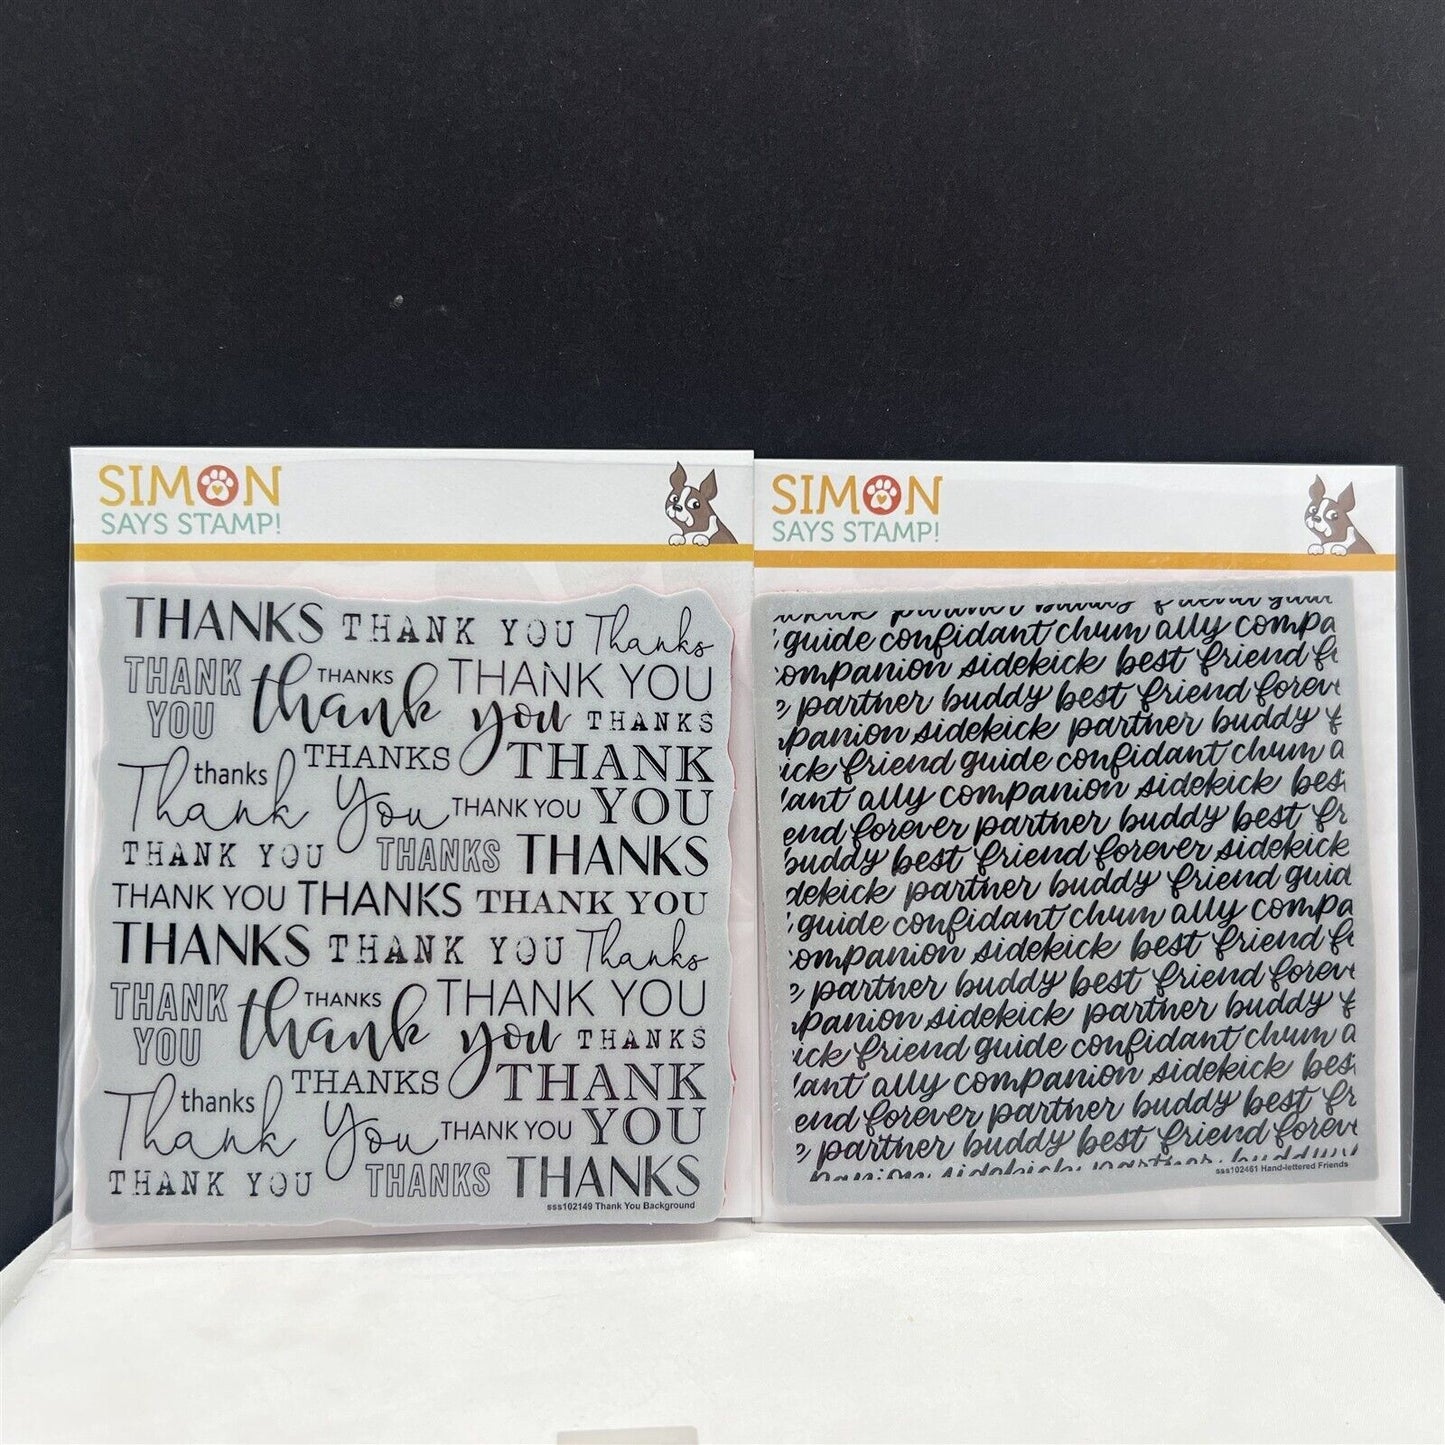 SIMON
SAYS STAMP!
THANKS THANK YOU Thanks
THANK YOU thank you THANKS THANK YOU
THANKS
Thank You thanks THANKS THANK YOU
THANK YOU
THANK YOU THANKS THANKS
THANK YOU THANKS THANK YOU
THANKS THANK YOU Thanks
THANK YOU thank you THANKS THANK YOU
THANKS
Thank You thanks THANKS THANK YOU
THANK YOU
THANK YOU THANKS THANKS
sss102149 Thank You Background
SIMON
SAYS STAMP!
partner buddy friend guid
guide confidant chum ally compa
ompanion sidekick best friend f
partner buddy best friend forev
panion sidekick partner buddy f
ick friend guide confidant chum a
ant ally companion sidekick bes
end forever partner buddy best fr
buddy best friend forever sidekick
dekick partner buddy friend guid
guide confidant chum ally compa
ompanion sidekick best friend f
partner buddy best friend forev
panion sidekick partner buddy f
ick friend guide confidant chum a
ant ally companion sidekick bes
end forever partner buddy best fr
e partner buddy best friend forev
panion sidekick partner buddy
sss102461 Hand-lettered Friends